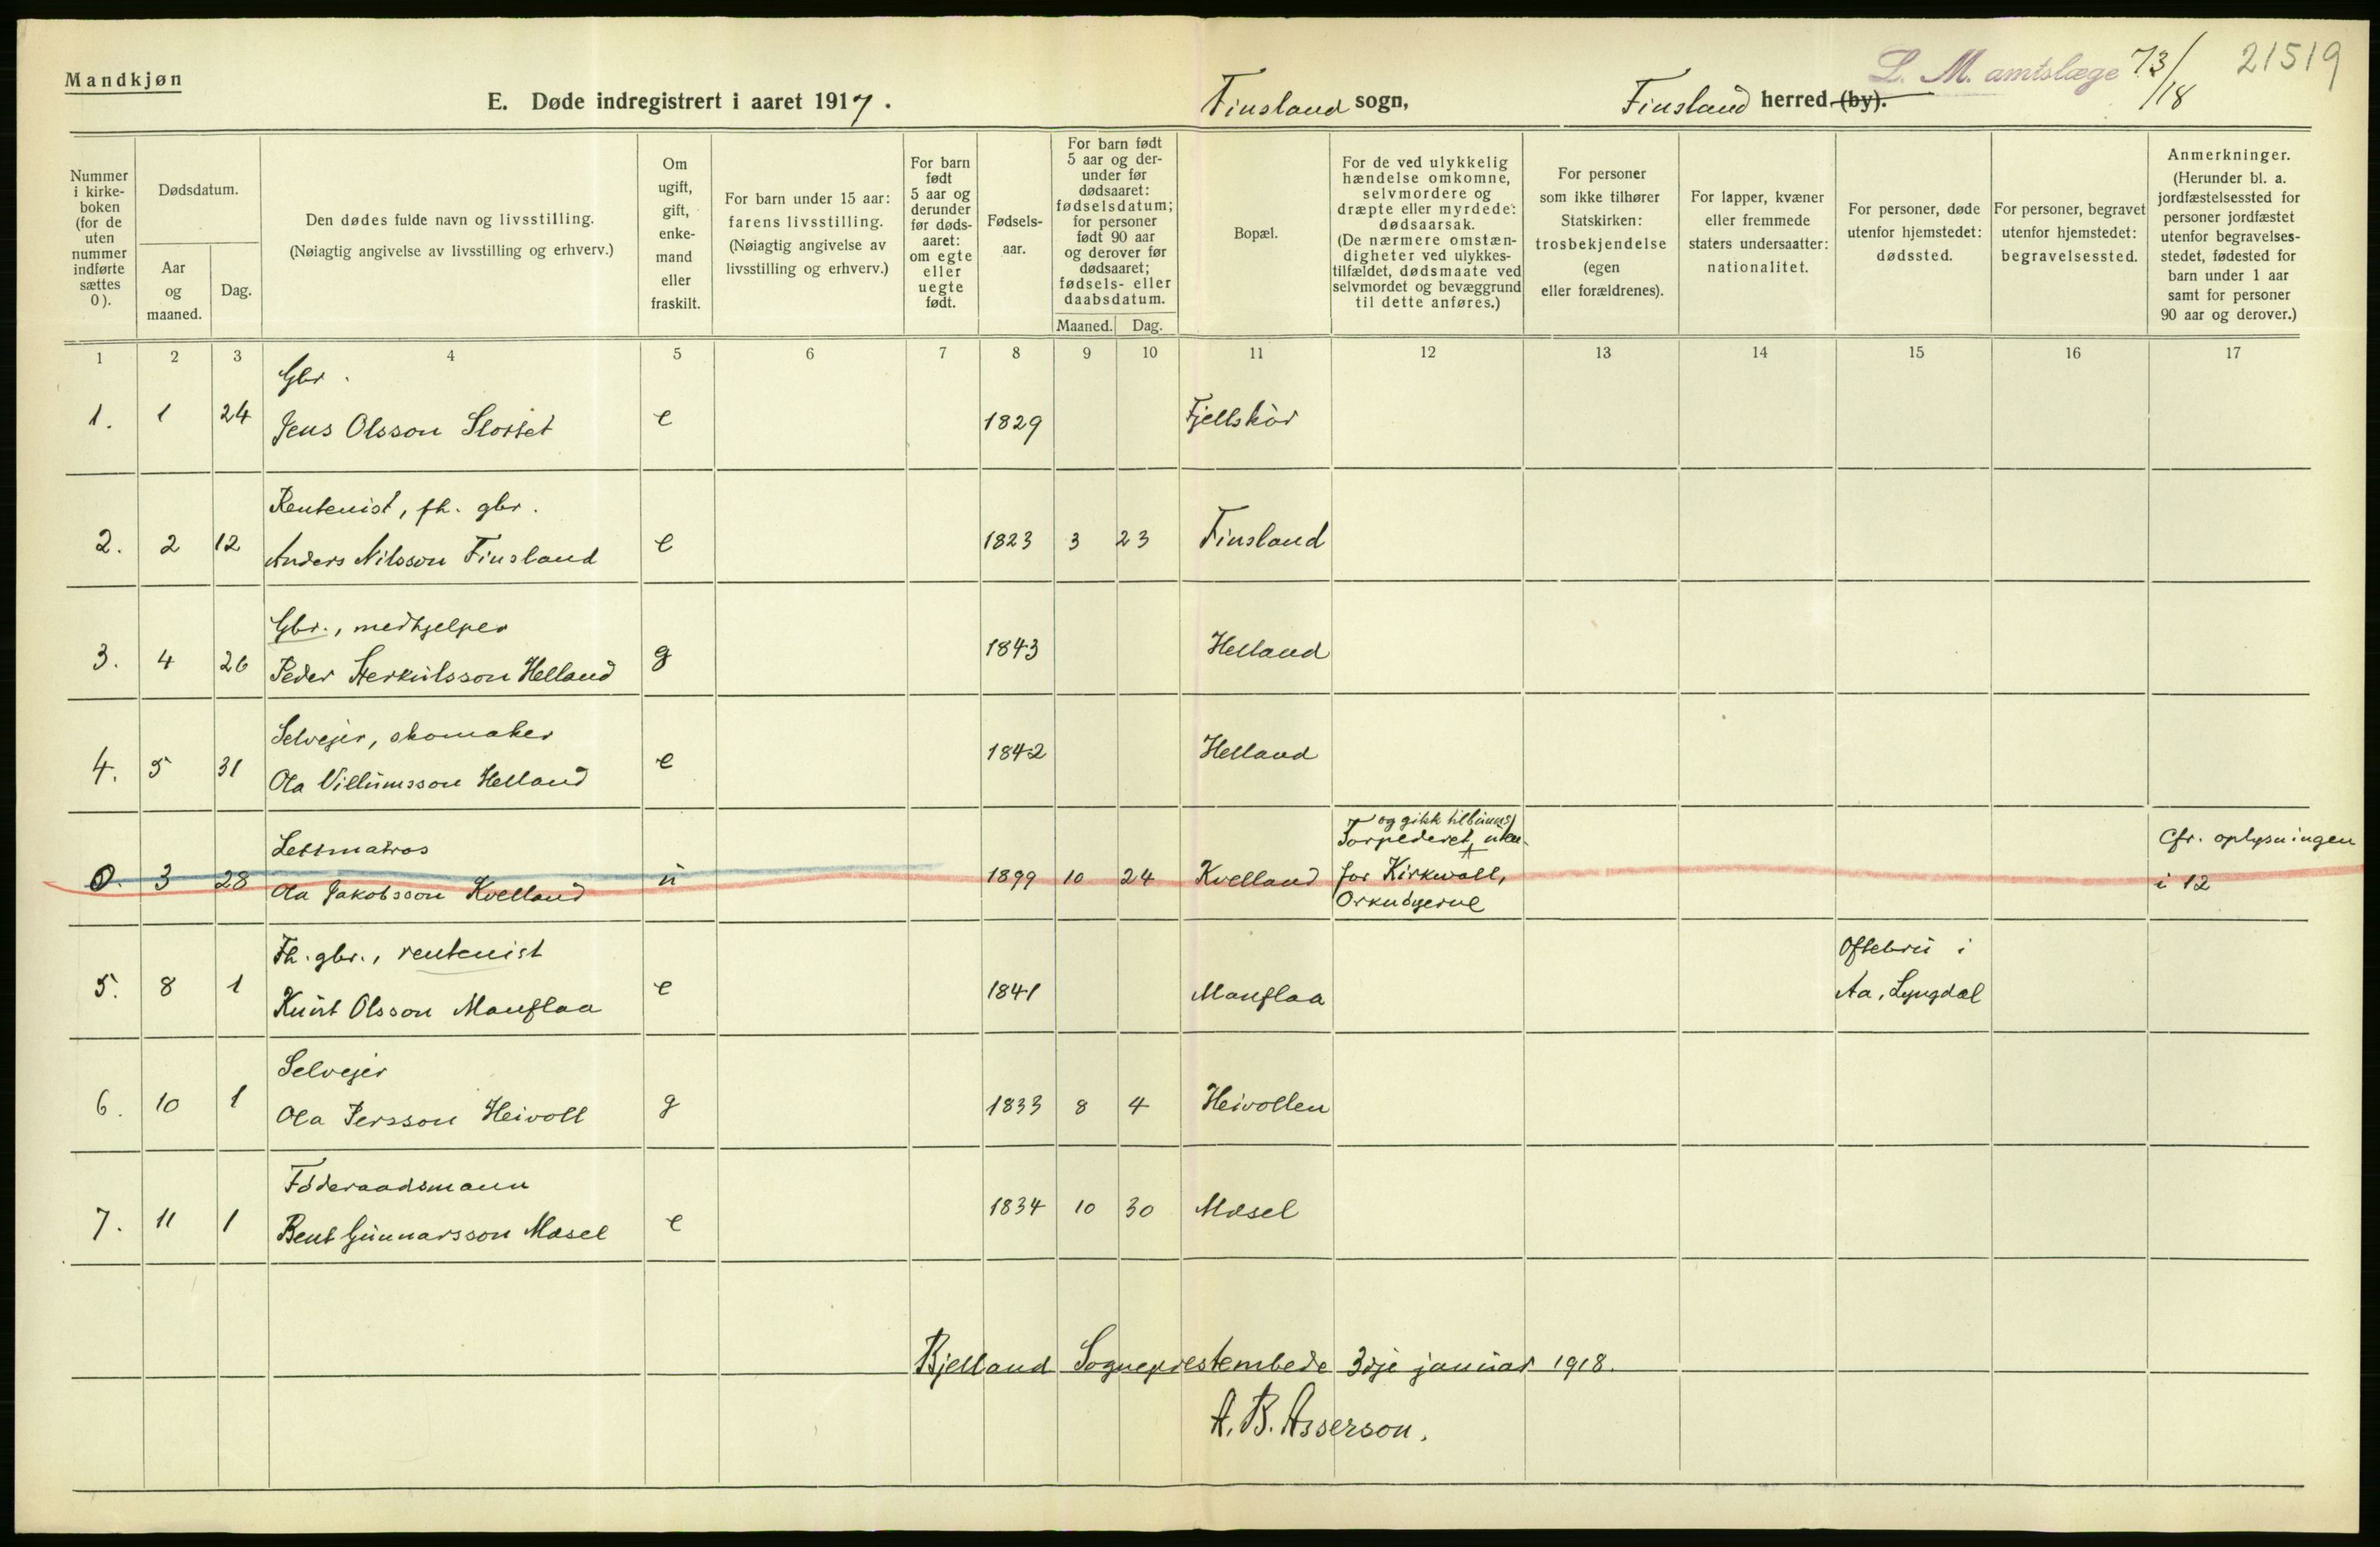 Mandkjøn
L. M. amtslæge 73/18 21519
E. Døde indregistrert i aaret 1917. Finsland sogn, Finsland herred (by).
Nummer i kirkeboken (for de uten nummer indførte sættes 0).
Dødsdatum.
Aar og maaned.
Dag.
Den dødes fulde navn og livsstilling.
(Nøiagtig angivelse av livsstilling og erhverv.)
Om ugift, gift, enkemand eller fraskilt.
For barn under 15 aar: farens livsstilling.
(Nøiagtig angivelse av livsstilling og erhverv.)
For barn født 5 aar og derunder før dødsaaret: om egte eller uegte født.
Fødselsaar.
For barn født 5 aar og derunder før dødsaaret: fødselsdatum; for personer født 90 aar og derover før dødsaaret; fødsels- eller daabsdatum.
Maaned. Dag.
Bopæl.
For de ved ulykkelig hændelse omkomne, selvmordere og dræpte eller myrdede: dødsaarsak.
(De nærmere omstændigheter ved ulykkestilfældet, dødsmaate ved selvmordet og bevæggrund til dette anføres.)
For personer som ikke tilhører Statskirken: trosbekjendelse (egen eller forældrenes).
For lapper, kvæner eller fremmede staters undersaatter: nationalitet.
For personer, døde utenfor hjemstedet: dødssted.
For personer, begravet utenfor hjemstedet: begravelsessted.
Anmerkninger.
(Herunder bl. a. jordfæstelsessted for personer jordfæstet utenfor begravelsesstedet, fødested for barn under 1 aar samt for personer 90 aar og derover.)
1 2 3 4 5 6 7 8 9 10 11 12 13 14 15 16 17
Gbr.
1. 1 24 Jens Olsson e 1829 Fjellskår
Rentenist, fh. gbr.
2. 2 12 Anders Nilsson Finsland e 1823 3 23 Finsland
Gbr., medhjelper
3. 4 26 Peder Herkulsson Helland g 1843 Helland
Selvejer, skomaker
4. 5 31 Ola Villumsson Helland e 1842 Helland
Lettmatros og gikk tilbunns
Torpederet, uten-
0. 3 28 Ola Jakobsson Kvelland u 1899 10 24 Kvelland for Kirkwall, Cfr. oplysningen
Orknøyerne i 12
Fh. gbr., rentenist Oftebru i
5. 8 1 Knut Olsson Manflaa e 1841 Manflaa Aa, Lyngdal
Selvejer
6. 10 1 Ola Persson Heivoll g 1833 8 4 Heivollen
Föderaadsmann
7. 11 1 Bent Gunnarsson Mæsel e 1834 10 30 Mæsel
Bjelland Sogneprestembede 3dje januar 1918.
A. B. Asserson.